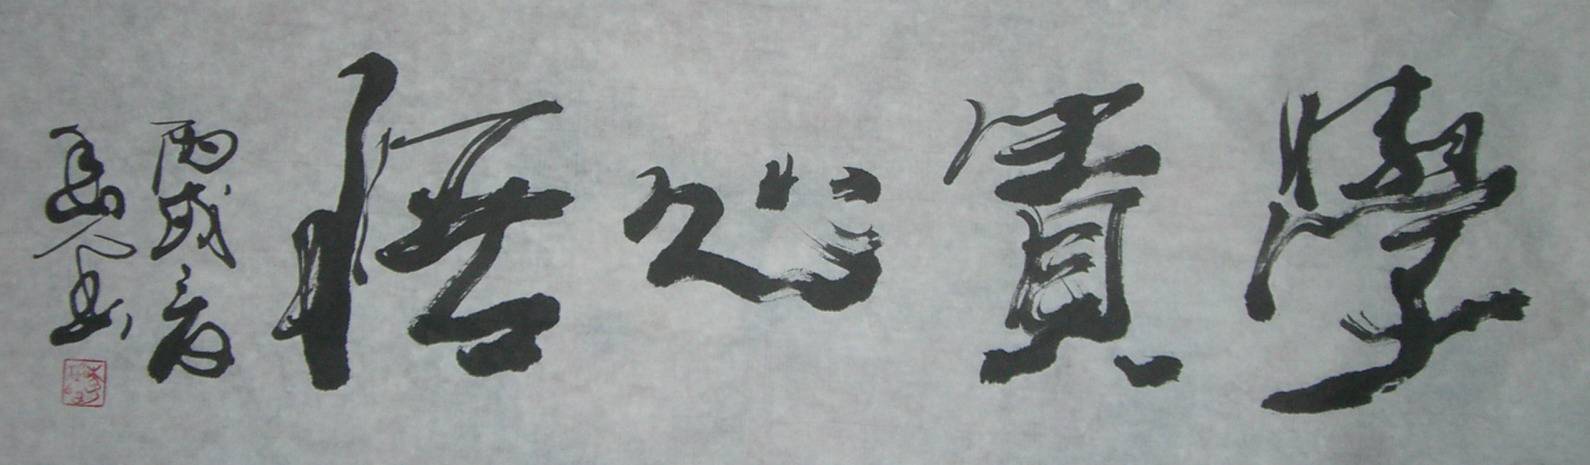 學貴心悟
丙戌夏